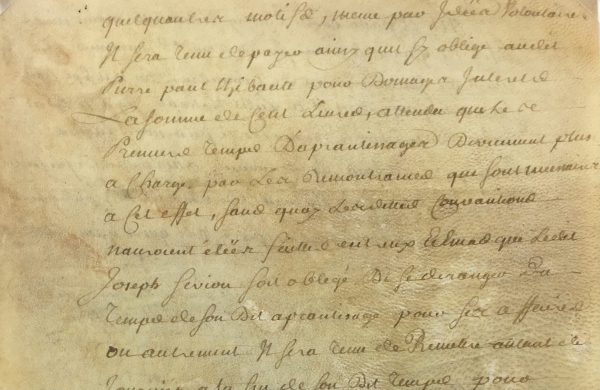 quelqu'autres motifs, meme par idéée Volontaire
Il sera tenu de payer ainsy quil sy oblige audit
Pierre paul thibault pour Domages Interets
La somme de Cent Livres, attendu que Le
Premiers temps Daprantissages Deviennent plus
a Charge par Les Remontrances que sont
a Cet effet, sans quoy Lesdittes Conventions
nauroient étéés faittes entreux Et mas que Ledit
Joseph soit obligé De se deranger Du
temps de son Dit aprantissage pour ses affaires
ou autrement Il sera tenu de Remettre autant de
Journées a la fin de son Dit temps pour